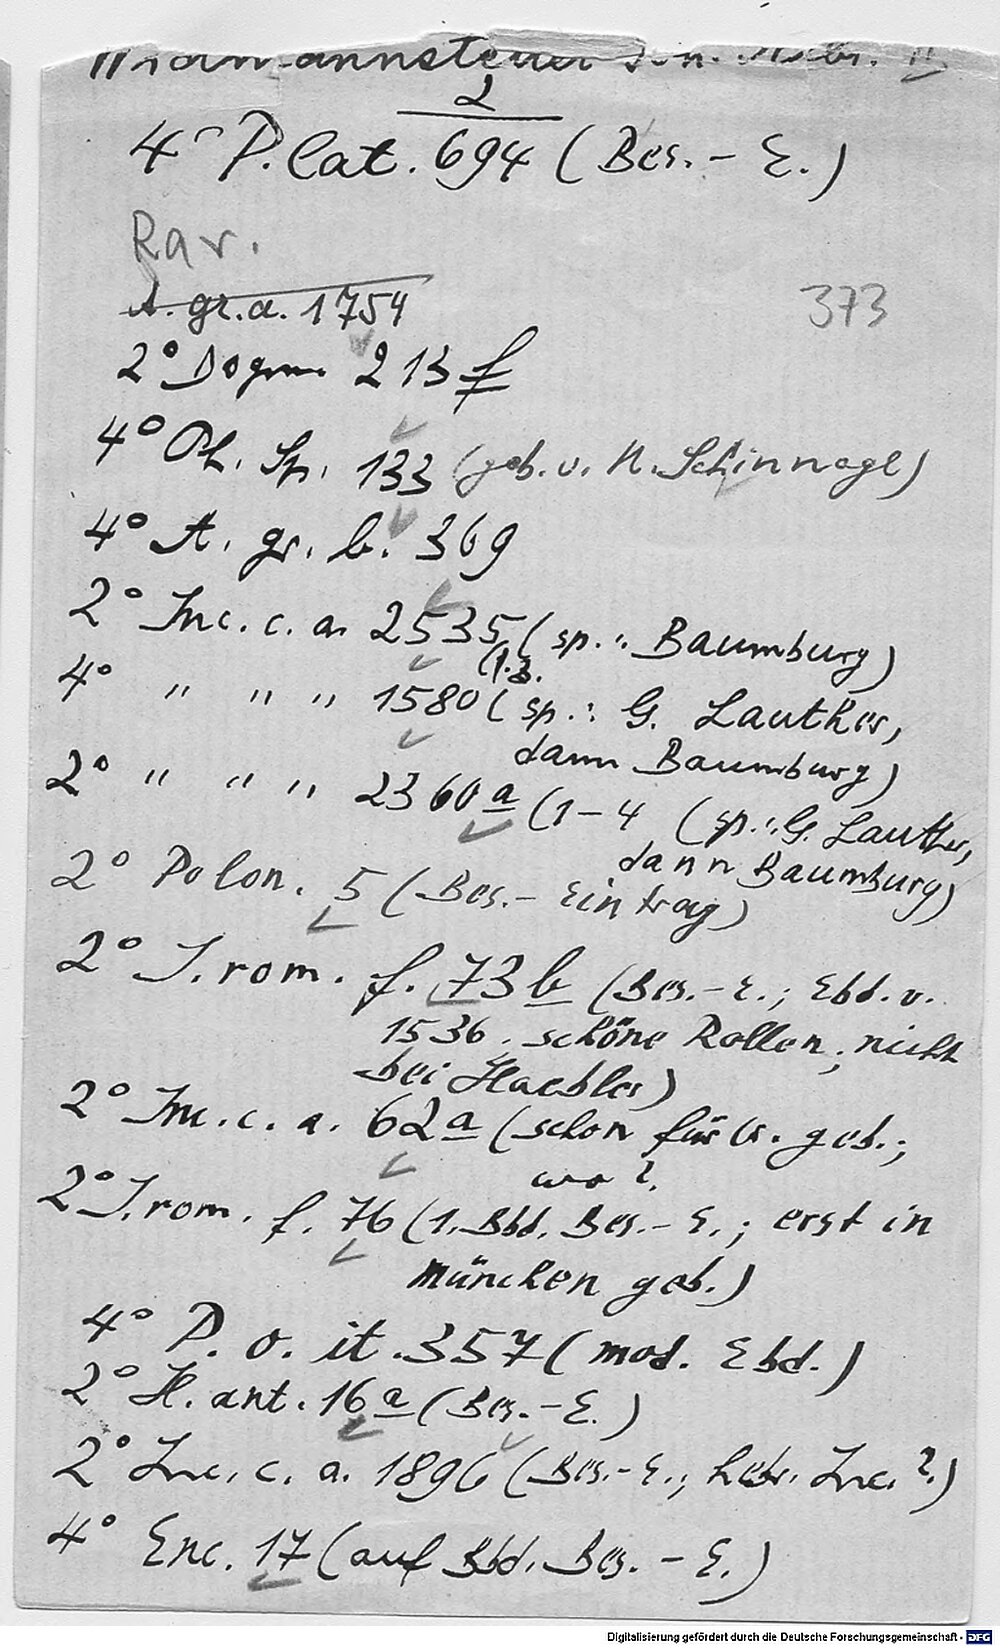 2
4° P. lat. 694 (Bes. - E.)
Rar.
A. gr. a. 1754
373
2° Dogm. 213 f
4° Ph. Sp. 133 (geb. v. H. Schinnagel)
4° A. gr. b. 369
2° Inc. c. a. 2535 (sp.: Baumburg)
4° " " " 1580 (sp.: G. Lauther,
dann Baumburg)
2° " " " 2360 a (1-4 (sp.: G. Lauther,
dann Baumburg)
2° Polon. 5 (Bes. - Eintrag)
2° J. rom. f. 73 b (Bes. - E.; Ebd. v.
1536. schöne Rollen, nicht
bei Haebler)
2° Inc. c. a. 62 a (schon für geb.;
wo?.
2° J. rom. f. 76 (1. Bbd. Bes. - E.; erst in
München geb.)
4° P. o. it. 357 (mod. Ebd.)
2° H. ant. 16 a (Bes. - E.)
2° Inc. c. a. 1896 (Bes. - E.; hebr. Inc.?.)
4° Enc. 17 (auf Bbd. Bes. - E.)
Digitalisierung gefördert durch die Deutsche Forschungsgemeinschaft - DFG